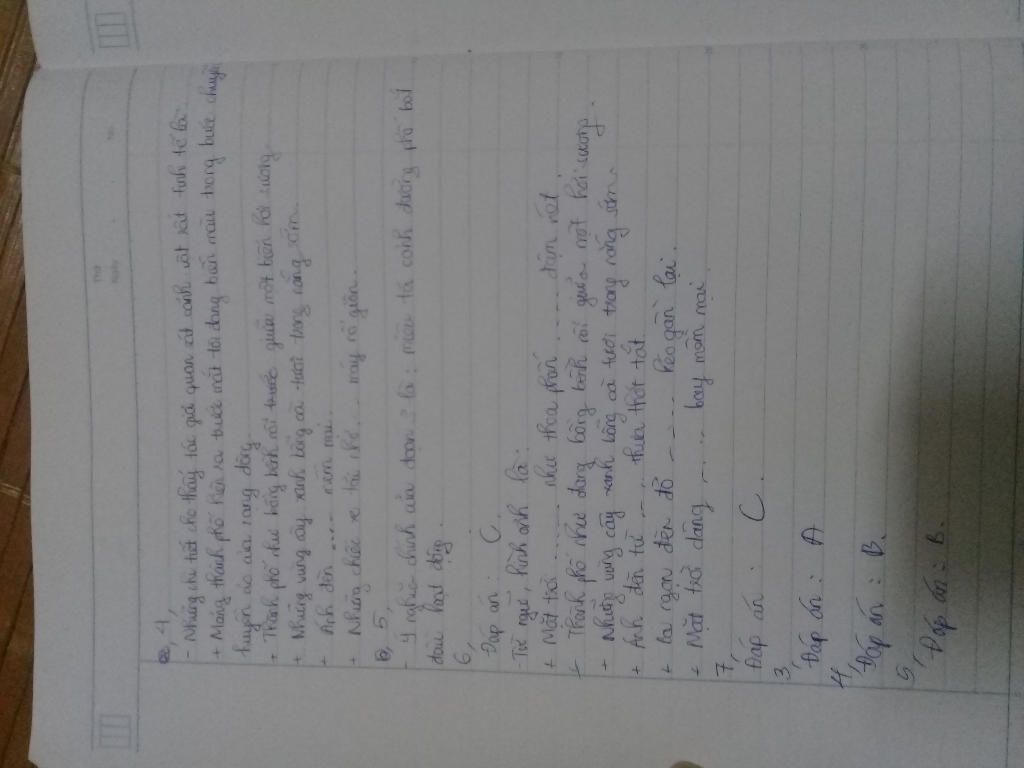 Thứ
Ngày
No.
4,
- Những chi tiết cho thấy tác giả quan sát cảnh vật rất tinh tế là:
+ Mảng thành phố hiện ra trước mắt tôi đang biến màu trong bước chuyển
huyền ảo của rạng đông.
+ Thành phố như bồng bềnh nổi giữa một biển hơi sương.
+ Những vùng cây xanh bỗng oà tươi trong nắng sớm.
+ Ánh đèn .... mềm mại.
+ Những chốc xe tải nhỏ, ... máy nổ giòn.
5,
- Ý nghĩa chính của đoạn 2 là: miêu tả cảnh đường phố bắt
đầu hoạt động.
6,
Đáp án: C
- Từ ngữ, hình ảnh là:
+ Mặt trời ........ như thoa phấn ........ đậm nét.
+ Thành phố như đang bồng bềnh nổi giữa một hơi sương.
+ Những vùng cây xanh bỗng oà tươi trong nắng sớm.
+ Ánh đèn từ ........ thưa thớt tắt
+ Ba ngọn đèn đỏ ........ kéo gần lại.
+ Mặt trời dâng ........ bay mềm mại
7,
Đáp án: C.
3,
Đáp án: A
4,
Đáp án: B.
5,
Đáp án: B.